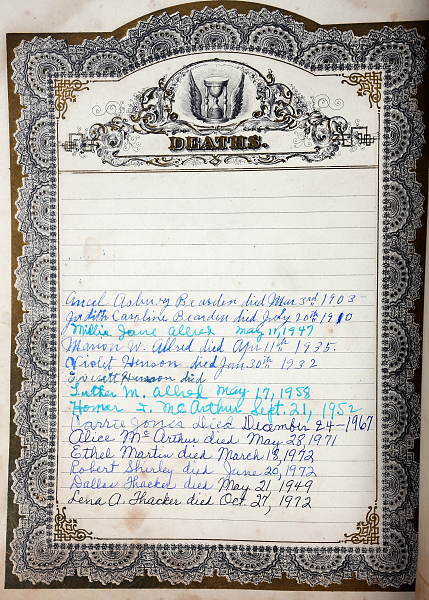 DEATHS.
Ancel Asbury Bearden died Mar 3rd 1903
Judith Caroline Bearden died July 20th 1910
Millie Jane Allred May 11, 1947
Marion W. Allred died Apr 11th 1935.
Violet Henson died Jan 30th 1932
Everett Henson died
Luther M. Allred May 17, 1958
Homer F. McArthur Sept. 21, 1952
Carrie Jones Died December 24-1967
Alice McArthur died May 28, 1971
Ethel Martin died March 13, 1972
Robert Shirley died June 20, 1972
Dallas Thacker died May 21, 1949
Lena A. Thacker died Oct. 27, 1972